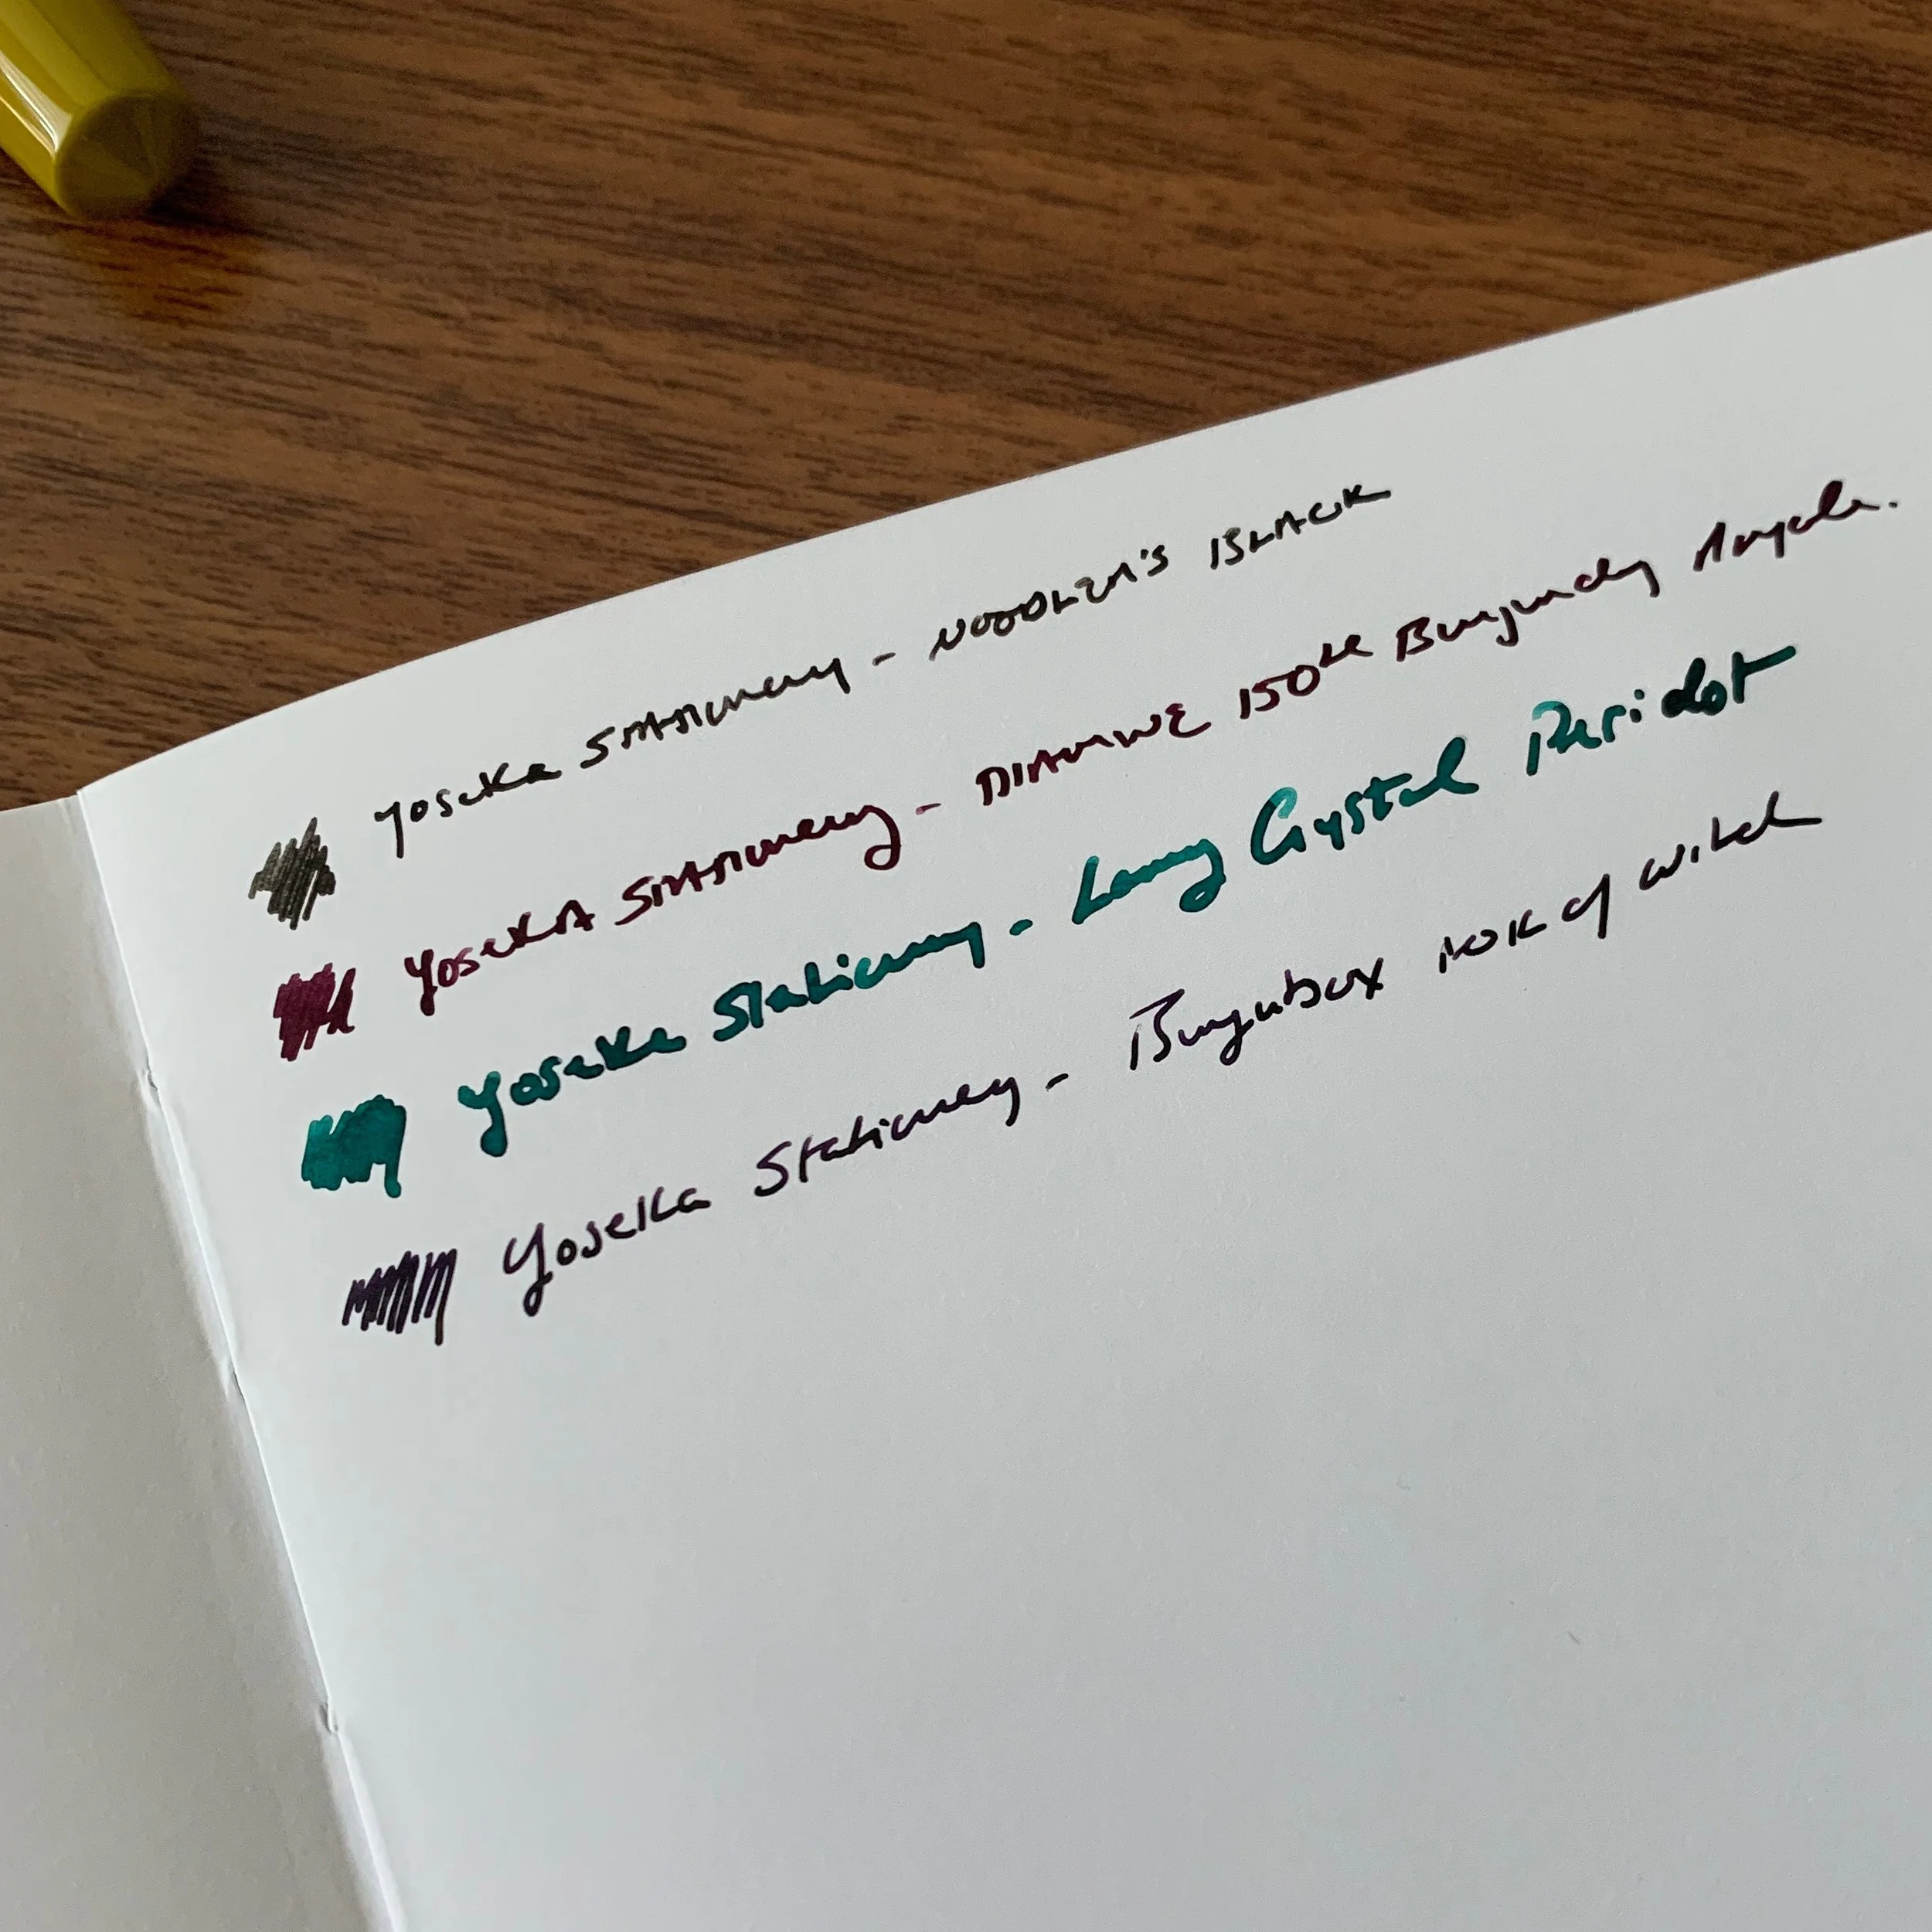 Yoseka Stationery - NOODLER'S BLACK
YOSEKA STATIONERY - DIAMINE 150th Burgundy Royale.
Yoseka Stationery - Lamy Crystal Peridot
Yoseka Stationery - Bungubox INK of witch